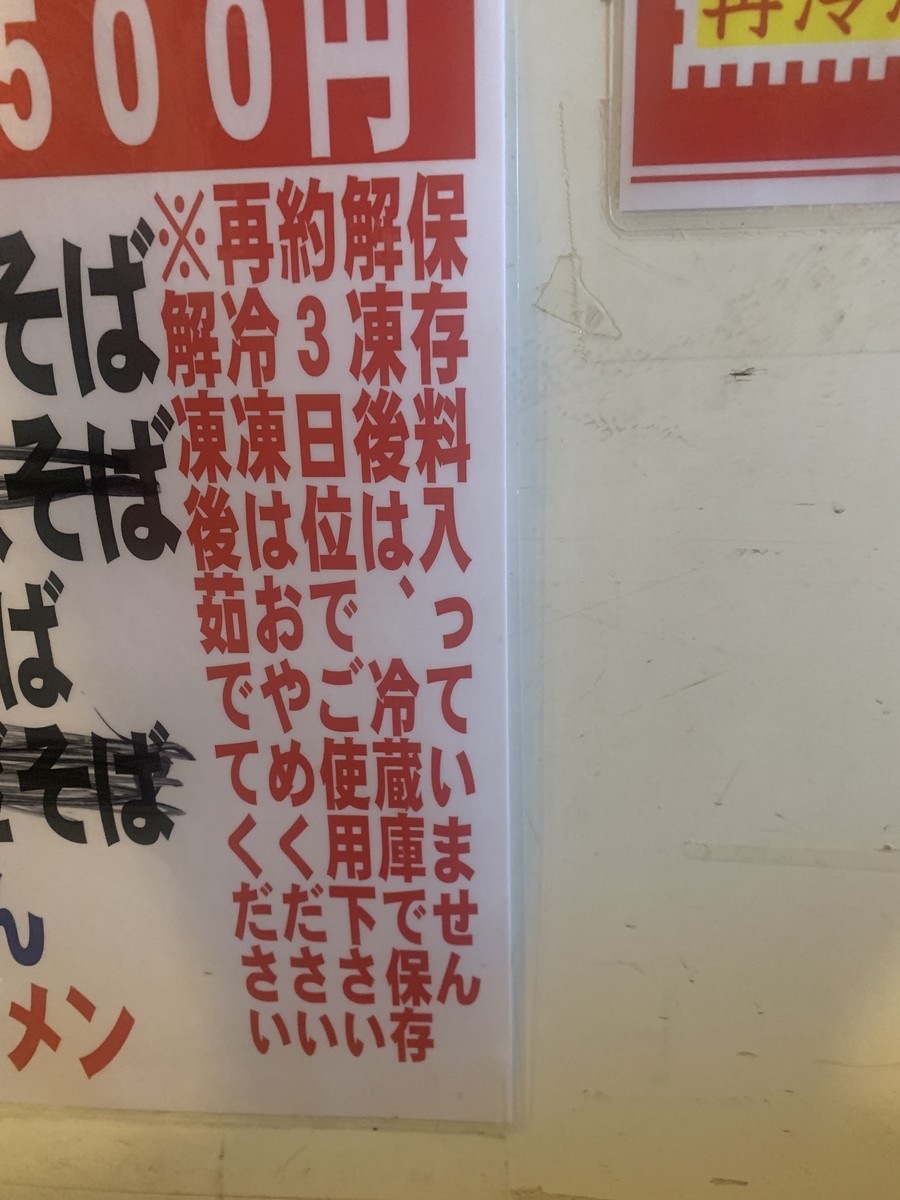 500円
保存料入っていません
解凍後は、冷蔵庫で保存
約3日位でご使用下さい
再冷凍はおやめください
※解凍後茹でてください
そば
そば
ば
そば
ん
メン
再冷